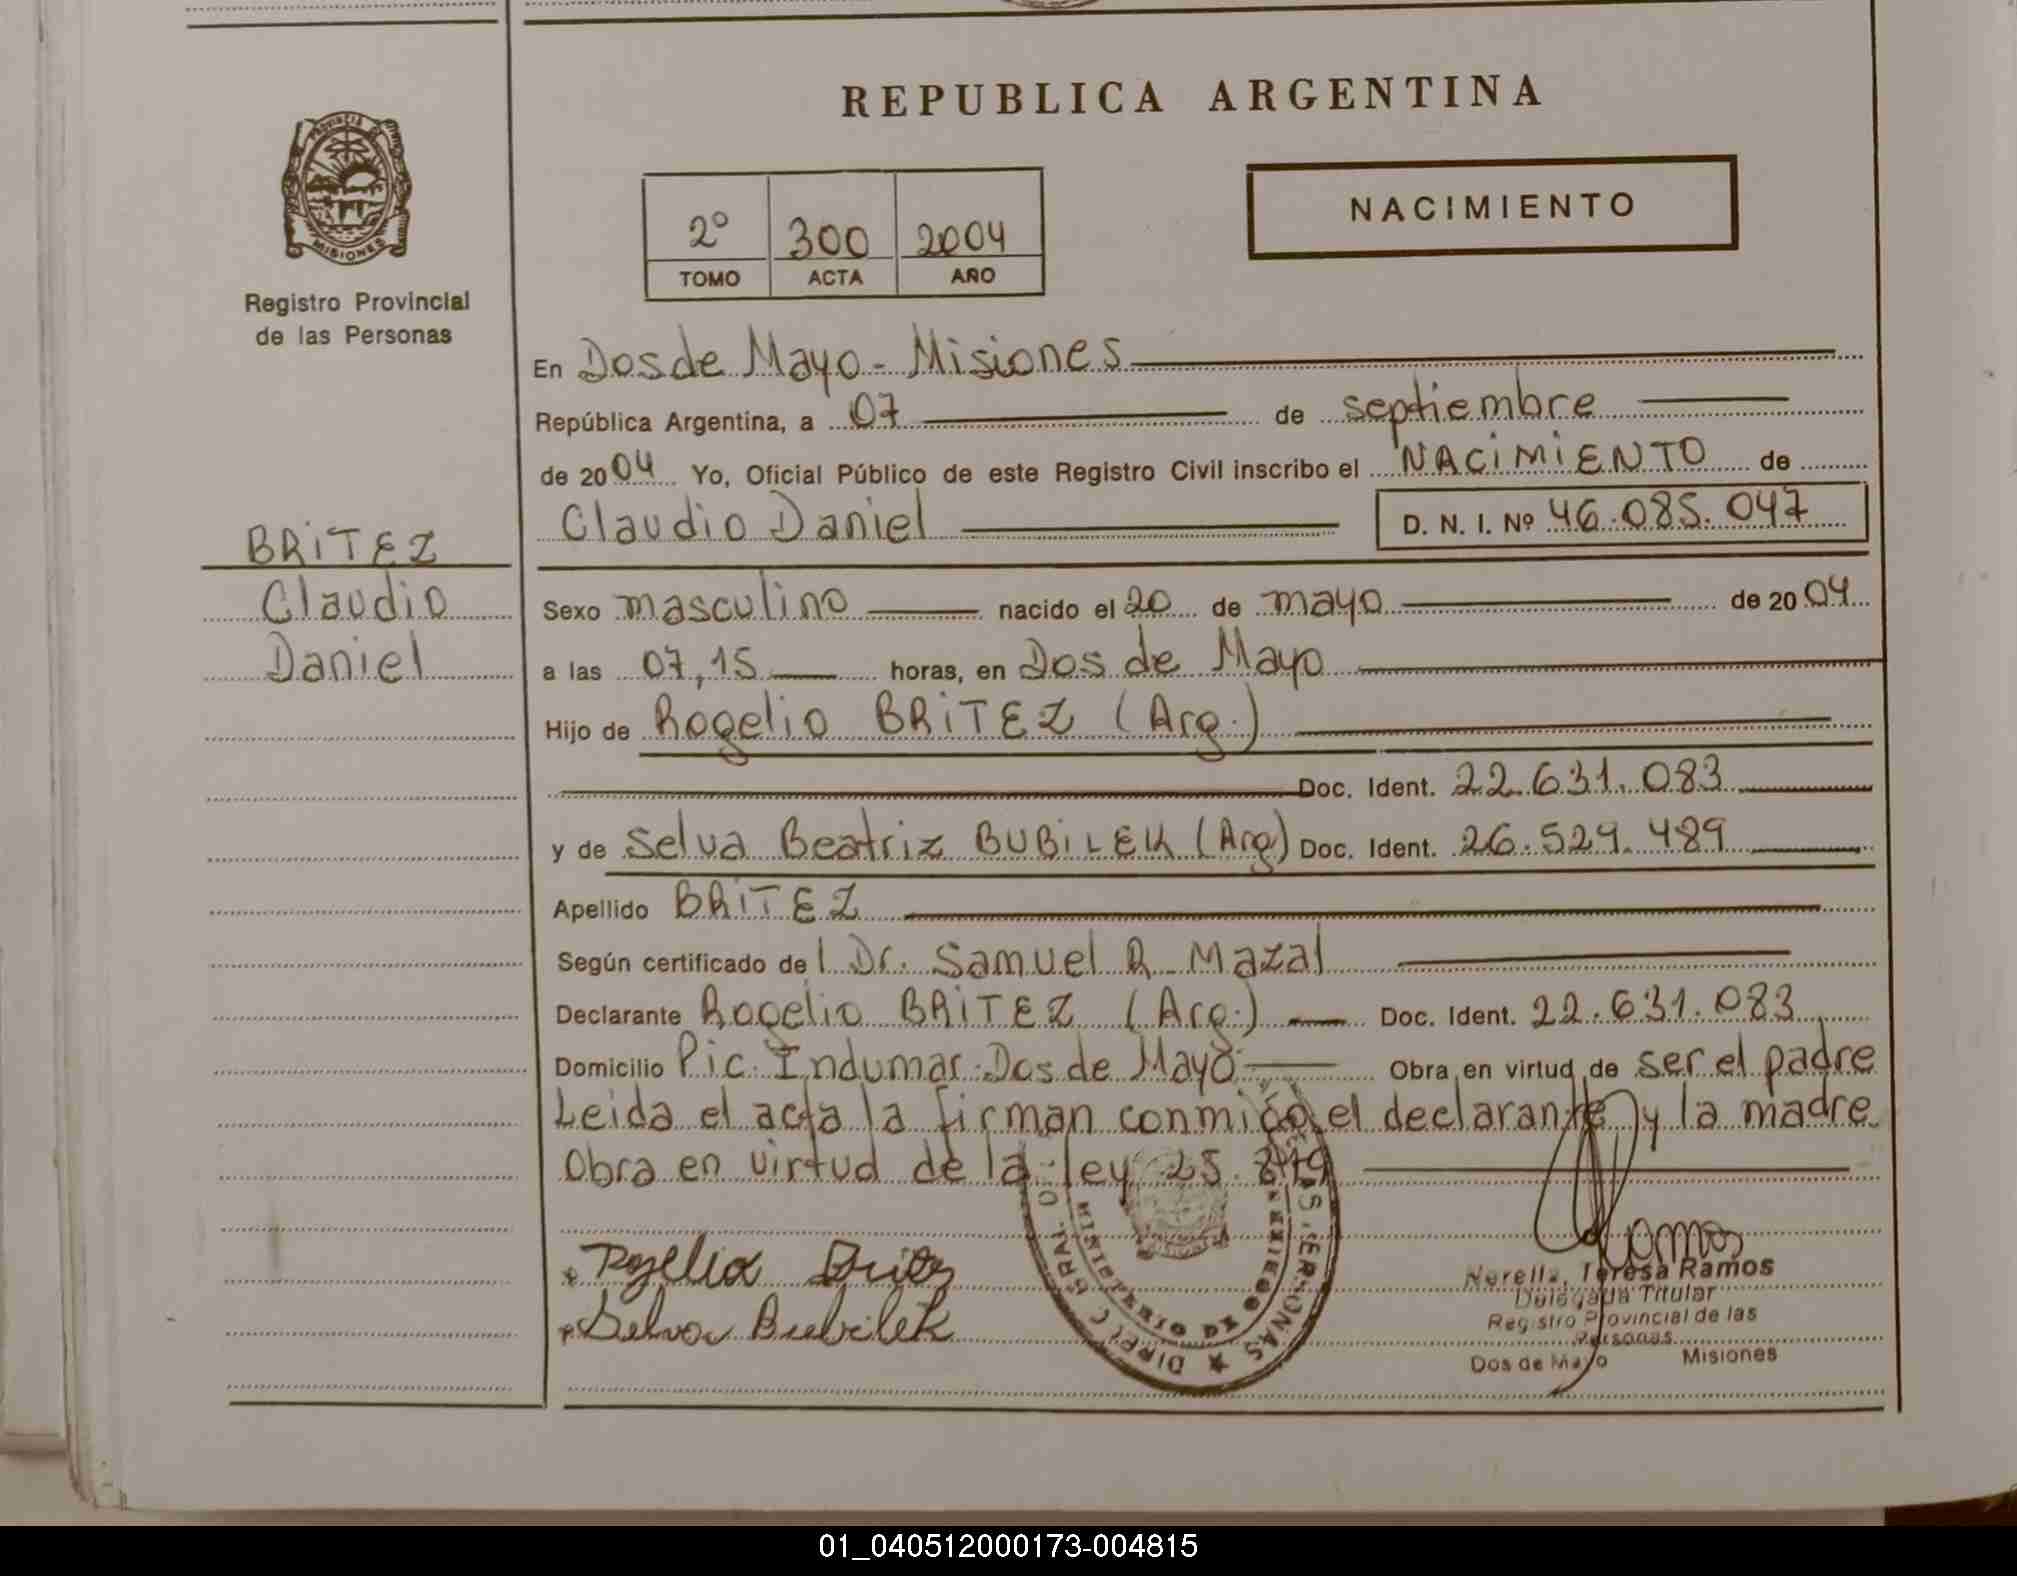 REPUBLICA ARGENTINA
PROVINCIA DE MISIONES
Registro Provincial
de las Personas
2º 300 2004
TOMO ACTA AÑO
NACIMIENTO
En Dos de Mayo - Misiones
República Argentina, a 07 de septiembre
de 2004 Yo, Oficial Público de este Registro Civil inscribo el NACIMIENTO de
Claudio Daniel D. N. I. Nº 46.085.047
BRITEZ
Claudio
Daniel
Sexo masculino nacido el 20 de mayo de 2004
a las 07,15 horas, en Dos de Mayo
Hijo de Rogelio BRITEZ (Arg.)
Doc. Ident. 22.631.083
y de Selva Beatriz BUBILEK (Arg) Doc. Ident. 26.529.489
Apellido BRITEZ
Según certificado del Dr. Samuel R. Mazal
Declarante Rogelio BRITEZ (Arg.) Doc. Ident. 22.631.083
Domicilio Pic. Indumar-Dos de Mayo Obra en virtud de ser el padre
Leida el acta la firman conmigo el declarante y la madre
Obra en virtud de la ley 25.819
Rogelio Britez
Selva Bubilek
Ramos
Norelia Teresa Ramos
Delegada Titular
Registro Provincial de las
Personas
Dos de Mayo Misiones
01_040512000173-004815